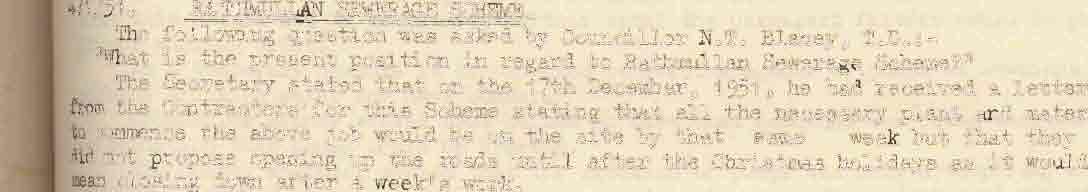 4/1/51. RATHMULLAN SEWERAGE SCHEME.
The following question was asked by Councillor N.T. Blaney, T.D.:-
"What is the present position in regard to Rathmullan Sewerage Scheme?"
The Secretary stated that on the 17th December, 1951, he had received a letter
from the Contractors for this Scheme stating that all the necessary plant and mater
to commence the above job would be on the site by that same week but that they
did not propose opening up the roads until after the Christmas holidays as it would
mean closing down after a week's work.